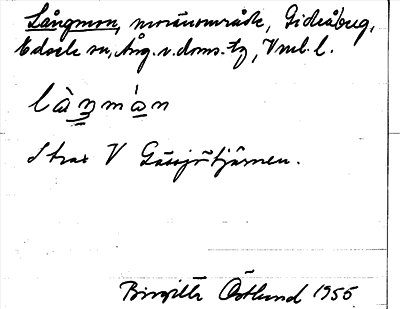 Långmon, moränområde, Gideåbrug,
Edsele sn, Ång. v. doms. tg, Vnrl. l.
làŋmán
Strax V Gässjötjärnen.
Birgitta Östlund 1955